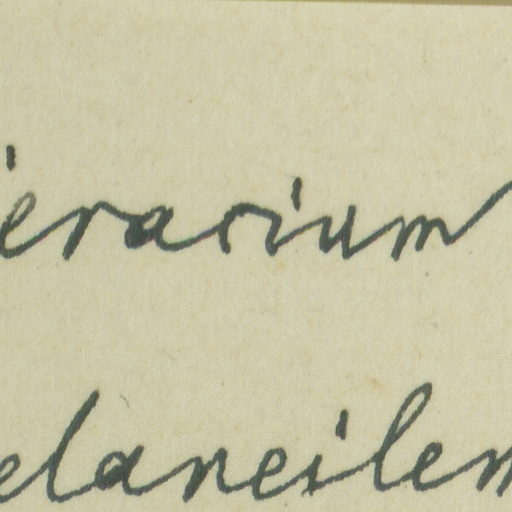 ieracium
elaneilem